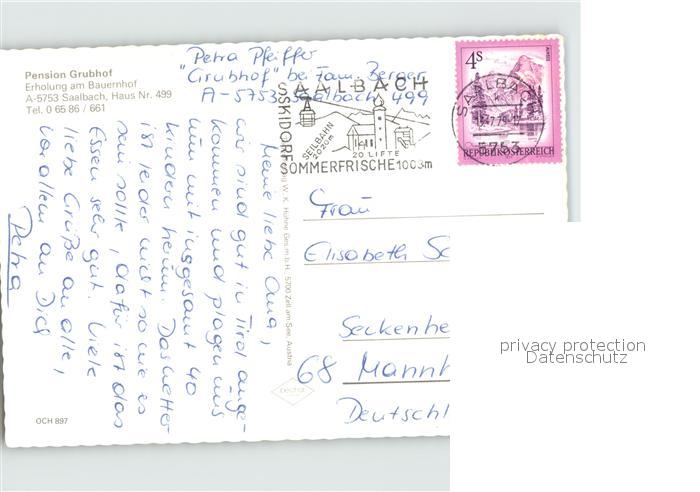 Pension Grubhof
Erholung am Bauernhof
A-5753 Saalbach, Haus Nr. 499
Tel. 0 65 86 / 661
Petra Pfeiffer
"Grubhof" bei Fam. Berger
A-5753 Saalbach 499
SAALBACH
SKIDORF
SEILBAHN
2020m
20 LIFTE
SOMMERFRISCHE 1003m
4s
REPUBLIK ÖSTERREICH
SAALBACH
5753
Meine liebe Oma,
wir sind gut in Tirol ange-
kommen und plagen uns
nun mit insgesamt 40
Kindern herum. Das Wetter
ist leider nicht so wie es
sein sollte, dafür ist das
Essen sehr gut. Viele
liebe Grüße an alle,
vor allem an Dich
Petra
W. K. Hühne Ges.m.b.H., 5700 Zell am See, Austria
Frau
Elisabeth Sc
Seckenhe
68 Mannh
Deutschl
OCH 897
privacy protection
Datenschutz